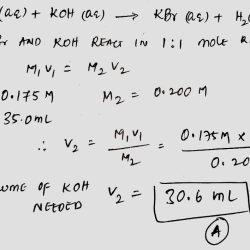 (aq) + KOH (aq) → KBr (aq) + H₂
AND KOH REACT IN 1:1 MOLE R
M₁V₁ = M₂V₂
0.175 M M₂ = 0.200 M
35.0mL
∴ V₂ = M₁V₁ / M₂ = 0.175M × / 0.20
UME OF KOH NEEDED V₂ = 30.6 mL
A